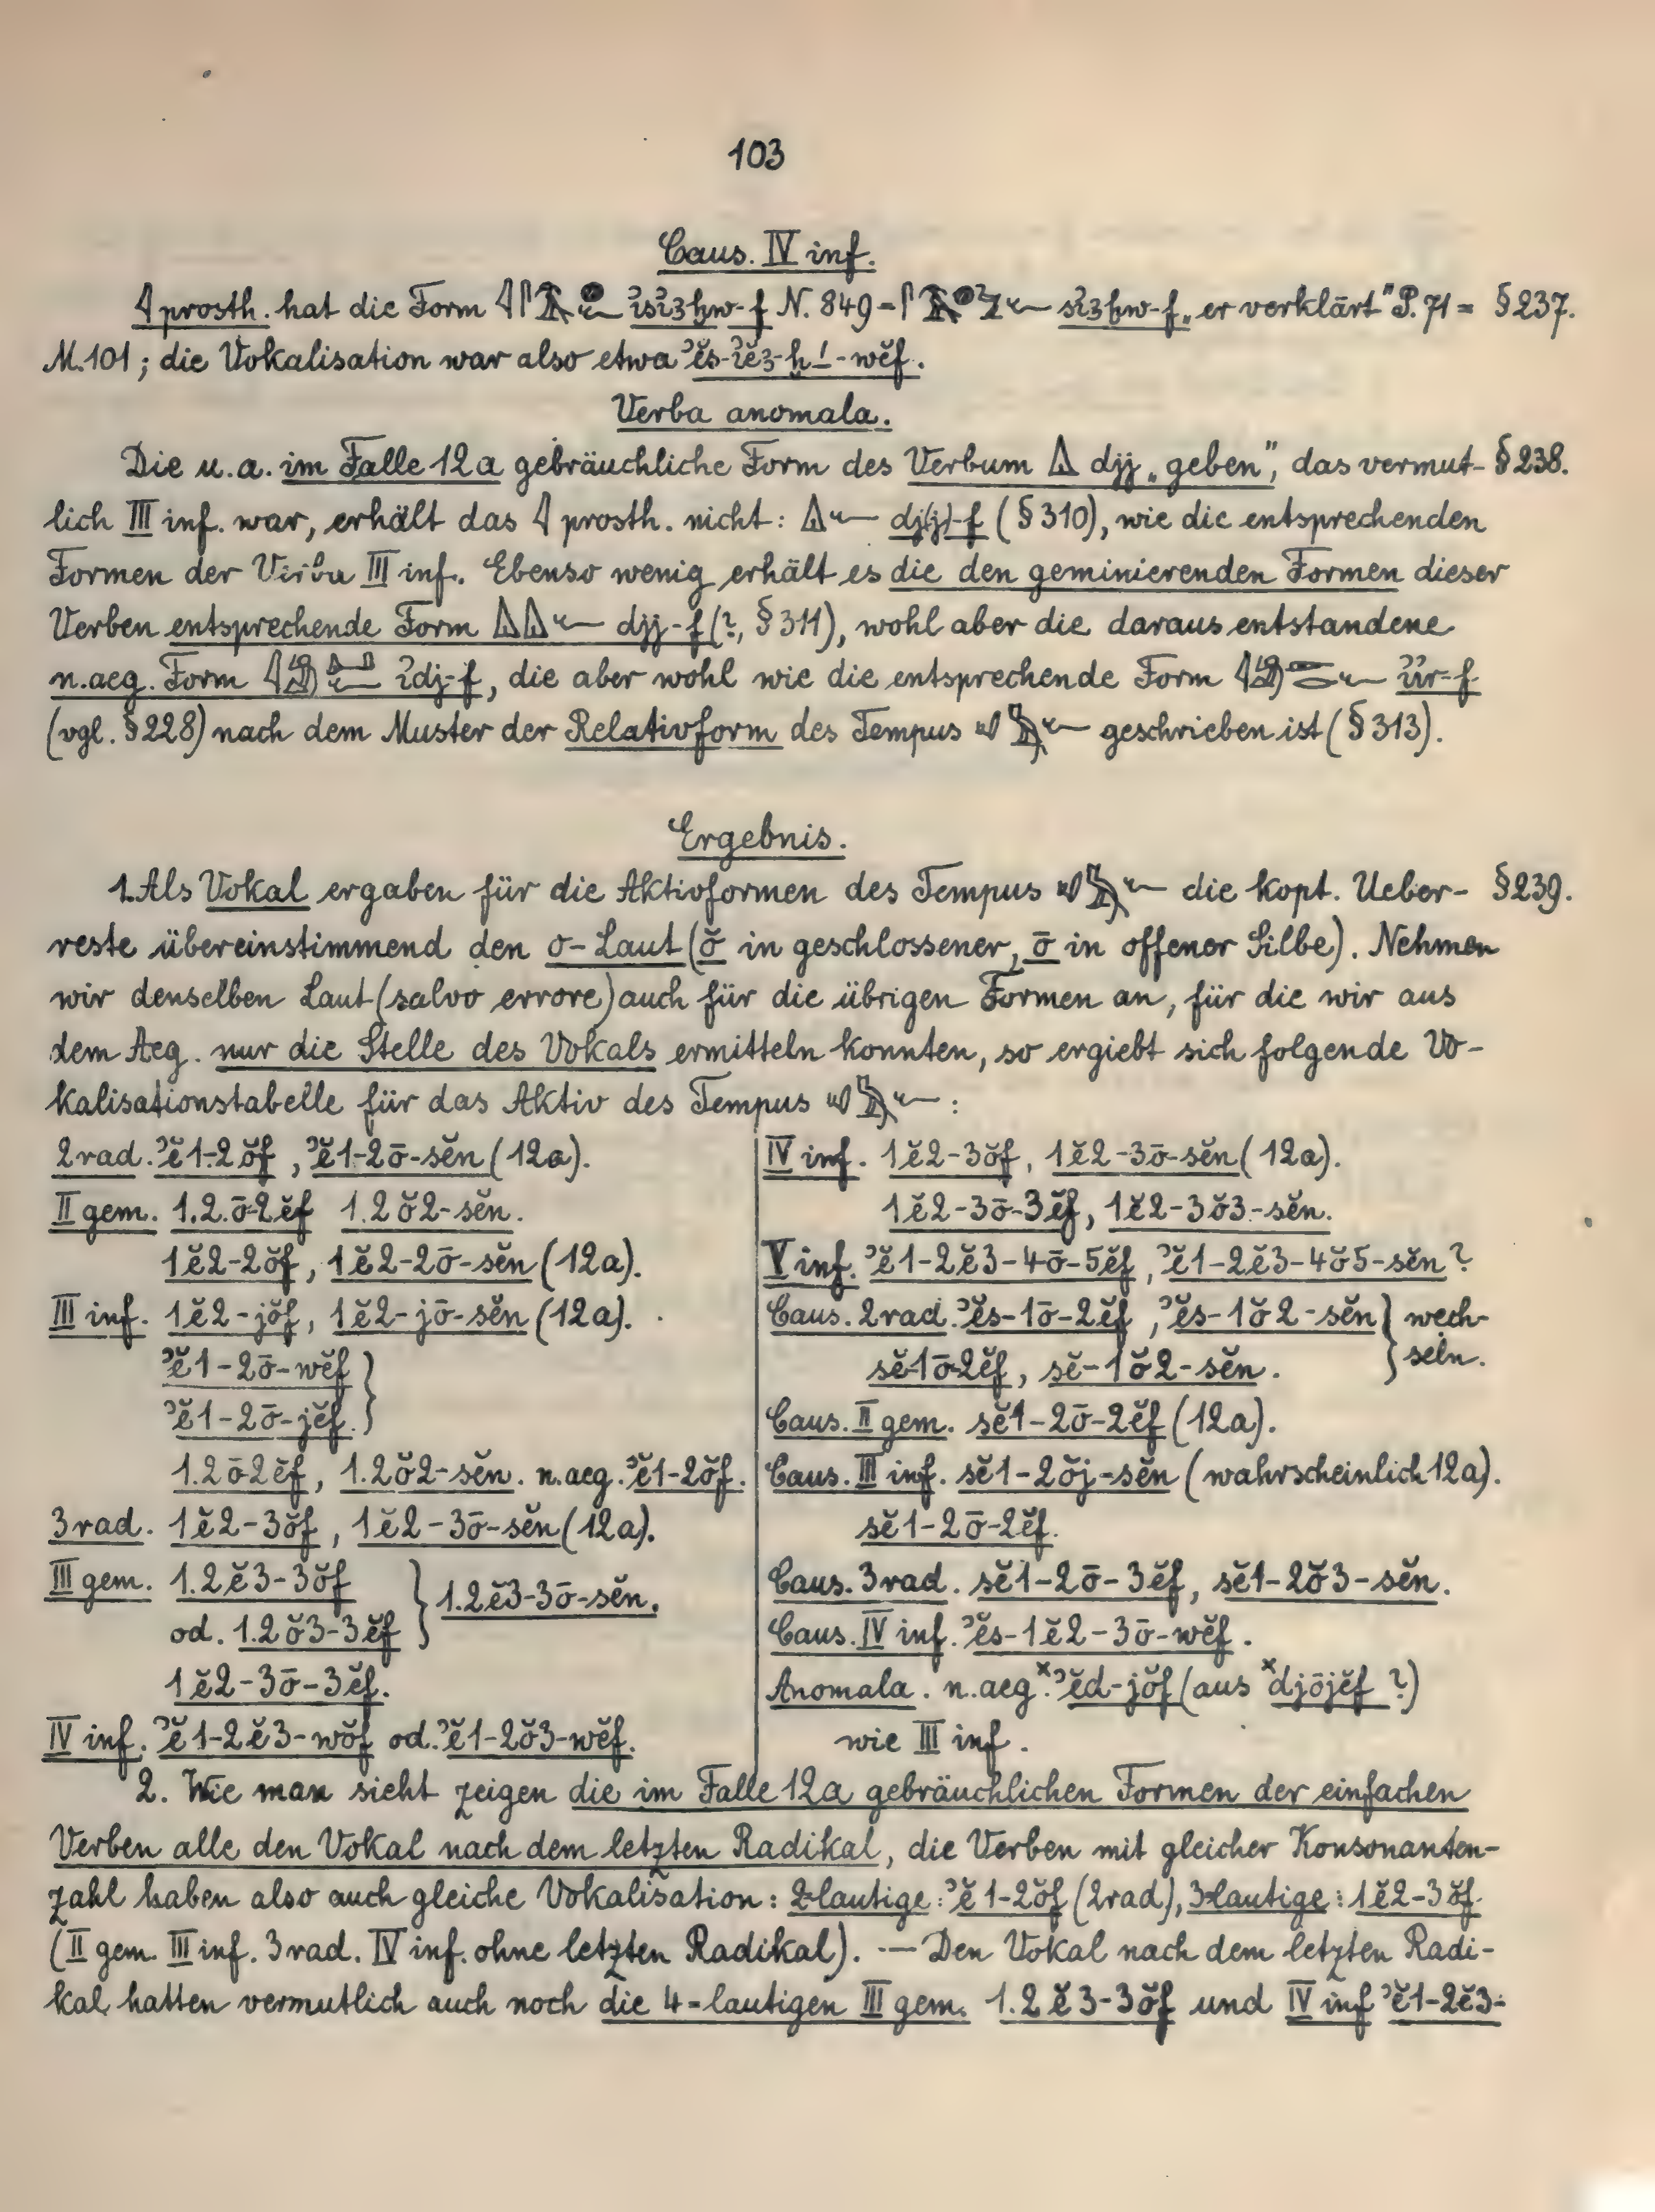 103
Caus. IV inf.
𓇋 prosth. hat die Form ἰsἰꜣḫw-f N. 849 = sἰꜣḫw-f „er verklärt" P. 71 = §237.
M. 101; die Vokalisation war also etwa ʾĕs-ἰĕꜣ-ḫ-́-wĕf.
Verba anomala.
Die u. a. im Falle 12a gebräuchliche Form des Verbum djj „geben", das vermut- §238.
lich III inf. war, erhält das 𓇋 prosth. nicht: dj(j)-f (§310), wie die entsprechenden
Formen der Verba III inf. Ebenso wenig erhält es die den geminierenden Formen dieser
Verben entsprechende Form djj-f (?, §311), wohl aber die daraus entstandene
n.aeg. Form ἰdj-f, die aber wohl wie die entsprechende Form ἰἰr-f
(vgl. §228) nach dem Muster der Relativform des Tempus geschrieben ist (§313).
Ergebnis.
1. Als Vokal ergaben für die Aktivformen des Tempus die kopt. Ueber- §239.
reste übereinstimmend den o-Laut (ŏ in geschlossener, ō in offener Silbe). Nehmen
wir denselben Laut (salvo errore) auch für die übrigen Formen an, für die wir aus
dem Aeg. nur die Stelle des Vokals ermitteln konnten, so ergiebt sich folgende Vo-
kalisationstabelle für das Aktiv des Tempus :
2 rad. ʾĕ1-2ŏf, ʾĕ1-2ō-sĕn (12a).
II gem. 1.2.ō-2ĕf 1.2ŏ2-sĕn.
1ĕ2-2ŏf, 1ĕ2-2ō-sĕn (12a).
III inf. 1ĕ2-jŏf, 1ĕ2-jō-sĕn (12a).
ʾĕ1-2ō-wĕf }
ʾĕ1-2ō-jĕf. }
1.2ō2ĕf, 1.2ŏ2-sĕn. n.aeg. ʾĕ1-2ŏf.
3 rad. 1ĕ2-3ŏf, 1ĕ2-3ō-sĕn (12a).
III gem. 1.2ĕ3-3ŏf } 1.2ĕ3-3ō-sĕn.
od. 1.2ŏ3-3ĕf
1ĕ2-3ō-3ĕf.
IV inf. ʾĕ1-2ĕ3-wŏf od. ʾĕ1-2ŏ3-wĕf.
IV inf. 1ĕ2-3ŏf, 1ĕ2-3ō-sĕn (12a).
1ĕ2-3ō-3ĕf, 1ĕ2-3ŏ3-sĕn.
V inf. ʾĕ1-2ĕ3-4ō-5ĕf, ʾĕ1-2ĕ3-4ŏ5-sĕn?
Caus. 2 rad. ʾĕs-1ō-2ĕf, ʾĕs-1ŏ2-sĕn } wech-
sĕ-1ō-2ĕf, sĕ-1ŏ2-sĕn. } seln.
Caus. II gem. sĕ1-2ō-2ĕf (12a).
Caus. III inf. sĕ1-2ŏj-sĕn (wahrscheinlich 12a).
sĕ1-2ō-2ĕf.
Caus. 3 rad. sĕ1-2ō-3ĕf, sĕ1-2ŏ3-sĕn.
Caus. IV inf. ʾĕs-1ĕ2-3ō-wĕf.
Anomala. n.aeg. ˣʾĕd-jŏf (aus ˣdjōjĕf ?)
wie III inf.
2. Wie man sieht zeigen die im Falle 12a gebräuchlichen Formen der einfachen
Verben alle den Vokal nach dem letzten Radikal, die Verben mit gleicher Konsonanten-
zahl haben also auch gleiche Vokalisation: 2-lautige: ʾĕ1-2ŏf (2rad), 3-lautige: 1ĕ2-3ŏf
(II gem. III inf. 3 rad. IV inf. ohne letzten Radikal). — Den Vokal nach dem letzten Radi-
kal hatten vermutlich auch noch die 4-lautigen III gem. 1.2ĕ3-3ŏf und IV inf ʾĕ1-2ĕ3-